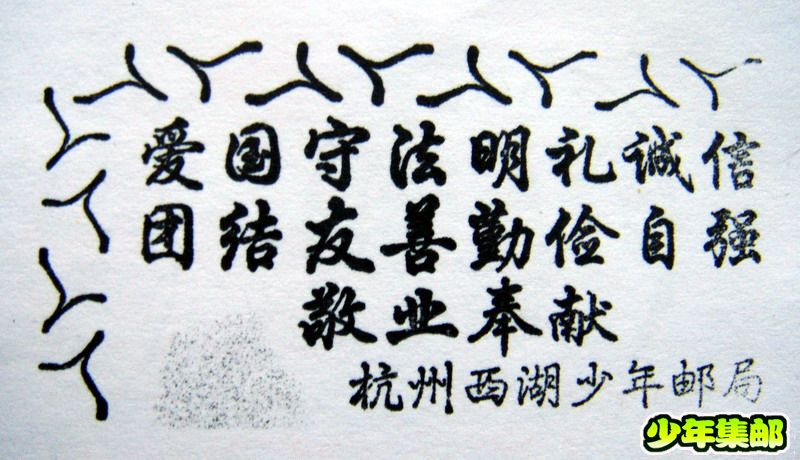 爱国守法明礼诚信
团结友善勤俭自强
敬业奉献
杭州西湖少年邮局
少年集邮